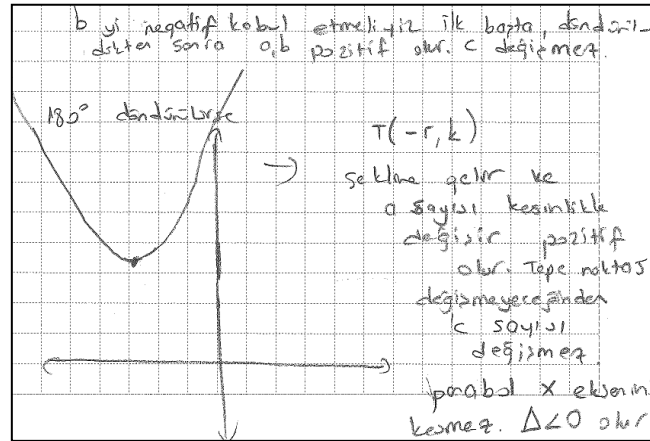 b yi negatif kabul etmeliyiz ilk başta, döndürül-
dükten sonra a,b pozitif olur. c değişmez.
180° döndürülürse
T(-r, k)
şekline gelir ve
a sayısı kesinlikle
değişir pozitif
olur. Tepe noktası
değişmeyeceğinden
c sayısı
değişmez.
parabol x eksenin
kesmez. Δ<0 olur